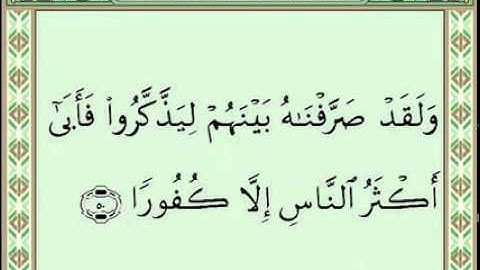 وَلَقَدْ صَرَّفْنَـٰهُ بَيْنَهُمْ لِيَذَّكَّرُوا۟ فَأَبَىٰٓ
أَكْثَرُ ٱلنَّاسِ إِلَّا كُفُورًا ٥٠